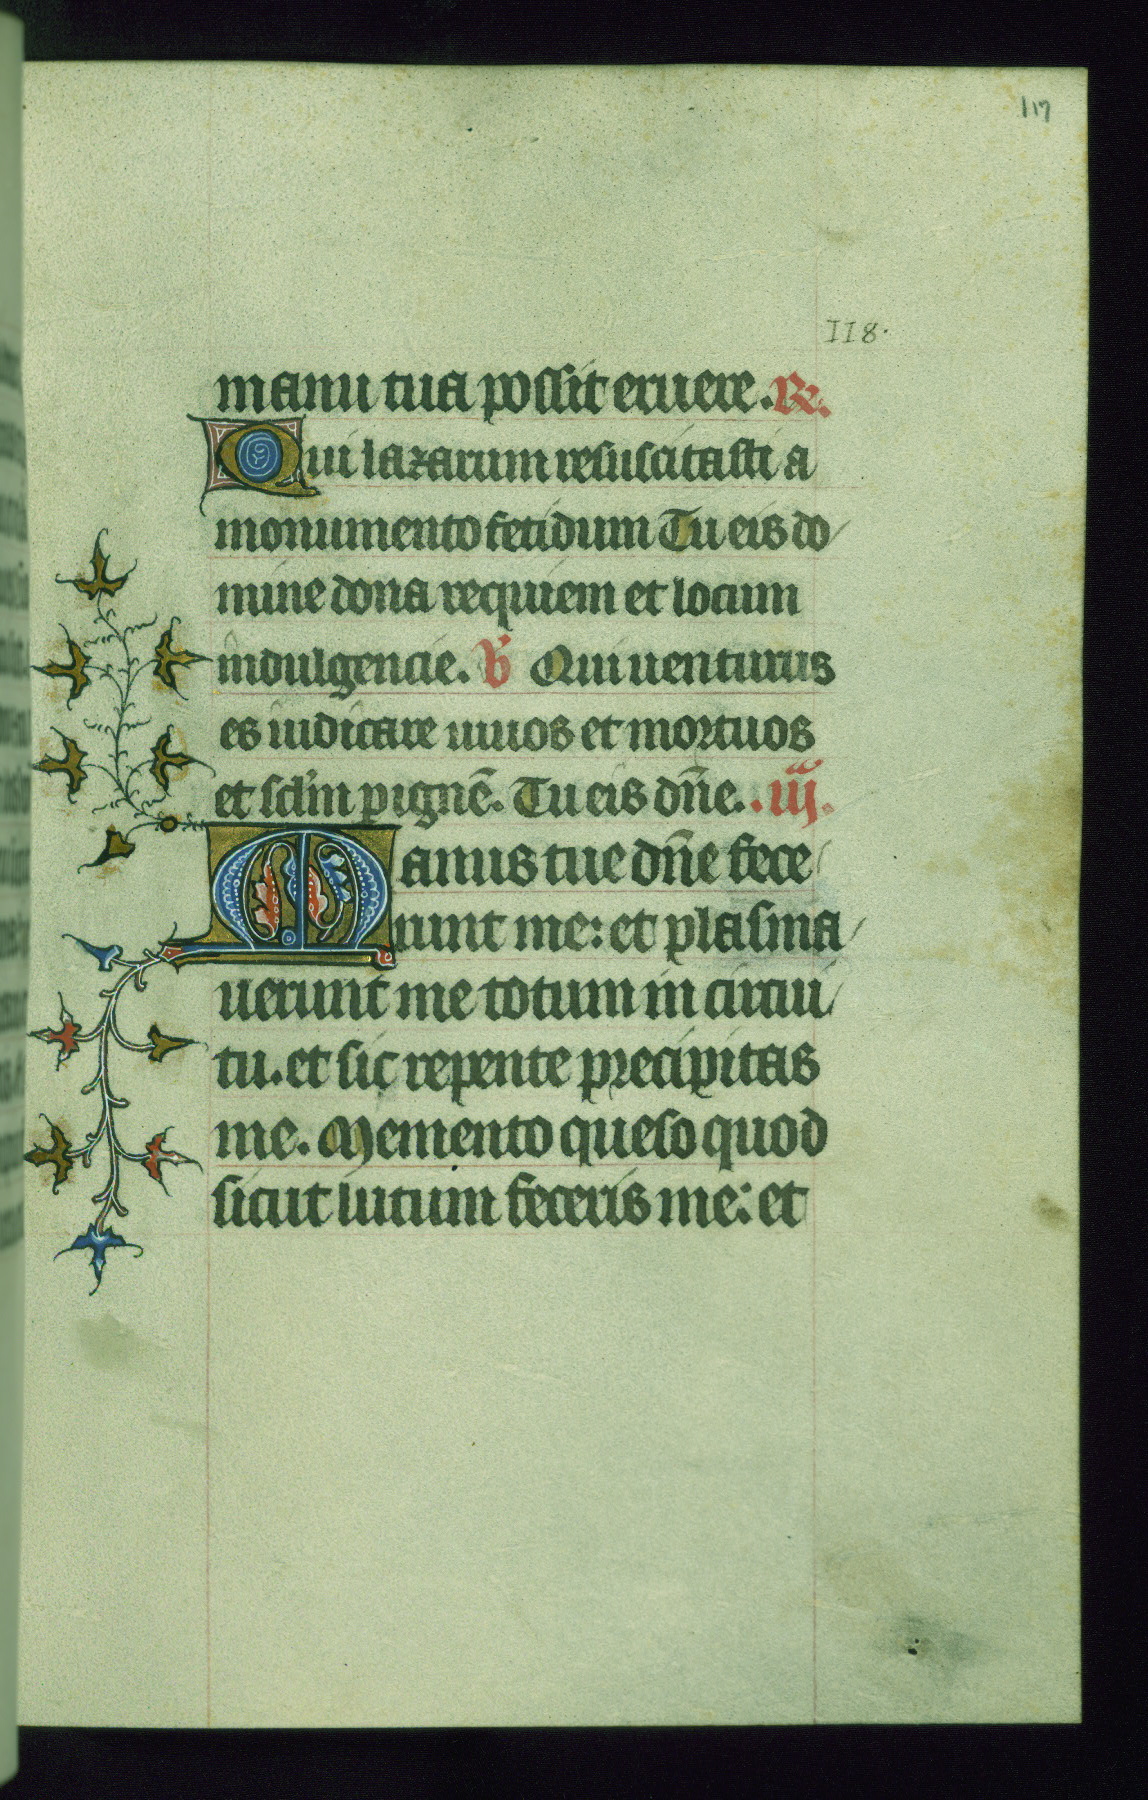 117
118.
manu tua possit eruere. R.
Qui lazarum resuscitasti a
monumento fetidum Tu eis do
mine dona requiem et locum
indulgencie. V Qui uenturus
es iudicare uiuos et mortuos
et sclm p ignē. Tu eis dñe. .iij.
Manus tue dñe fece
runt me: et plasma
uerunt me totum in circui
tu. et sic repente precipitas
me. Memento queso quod
sicut lutum feceris me: et